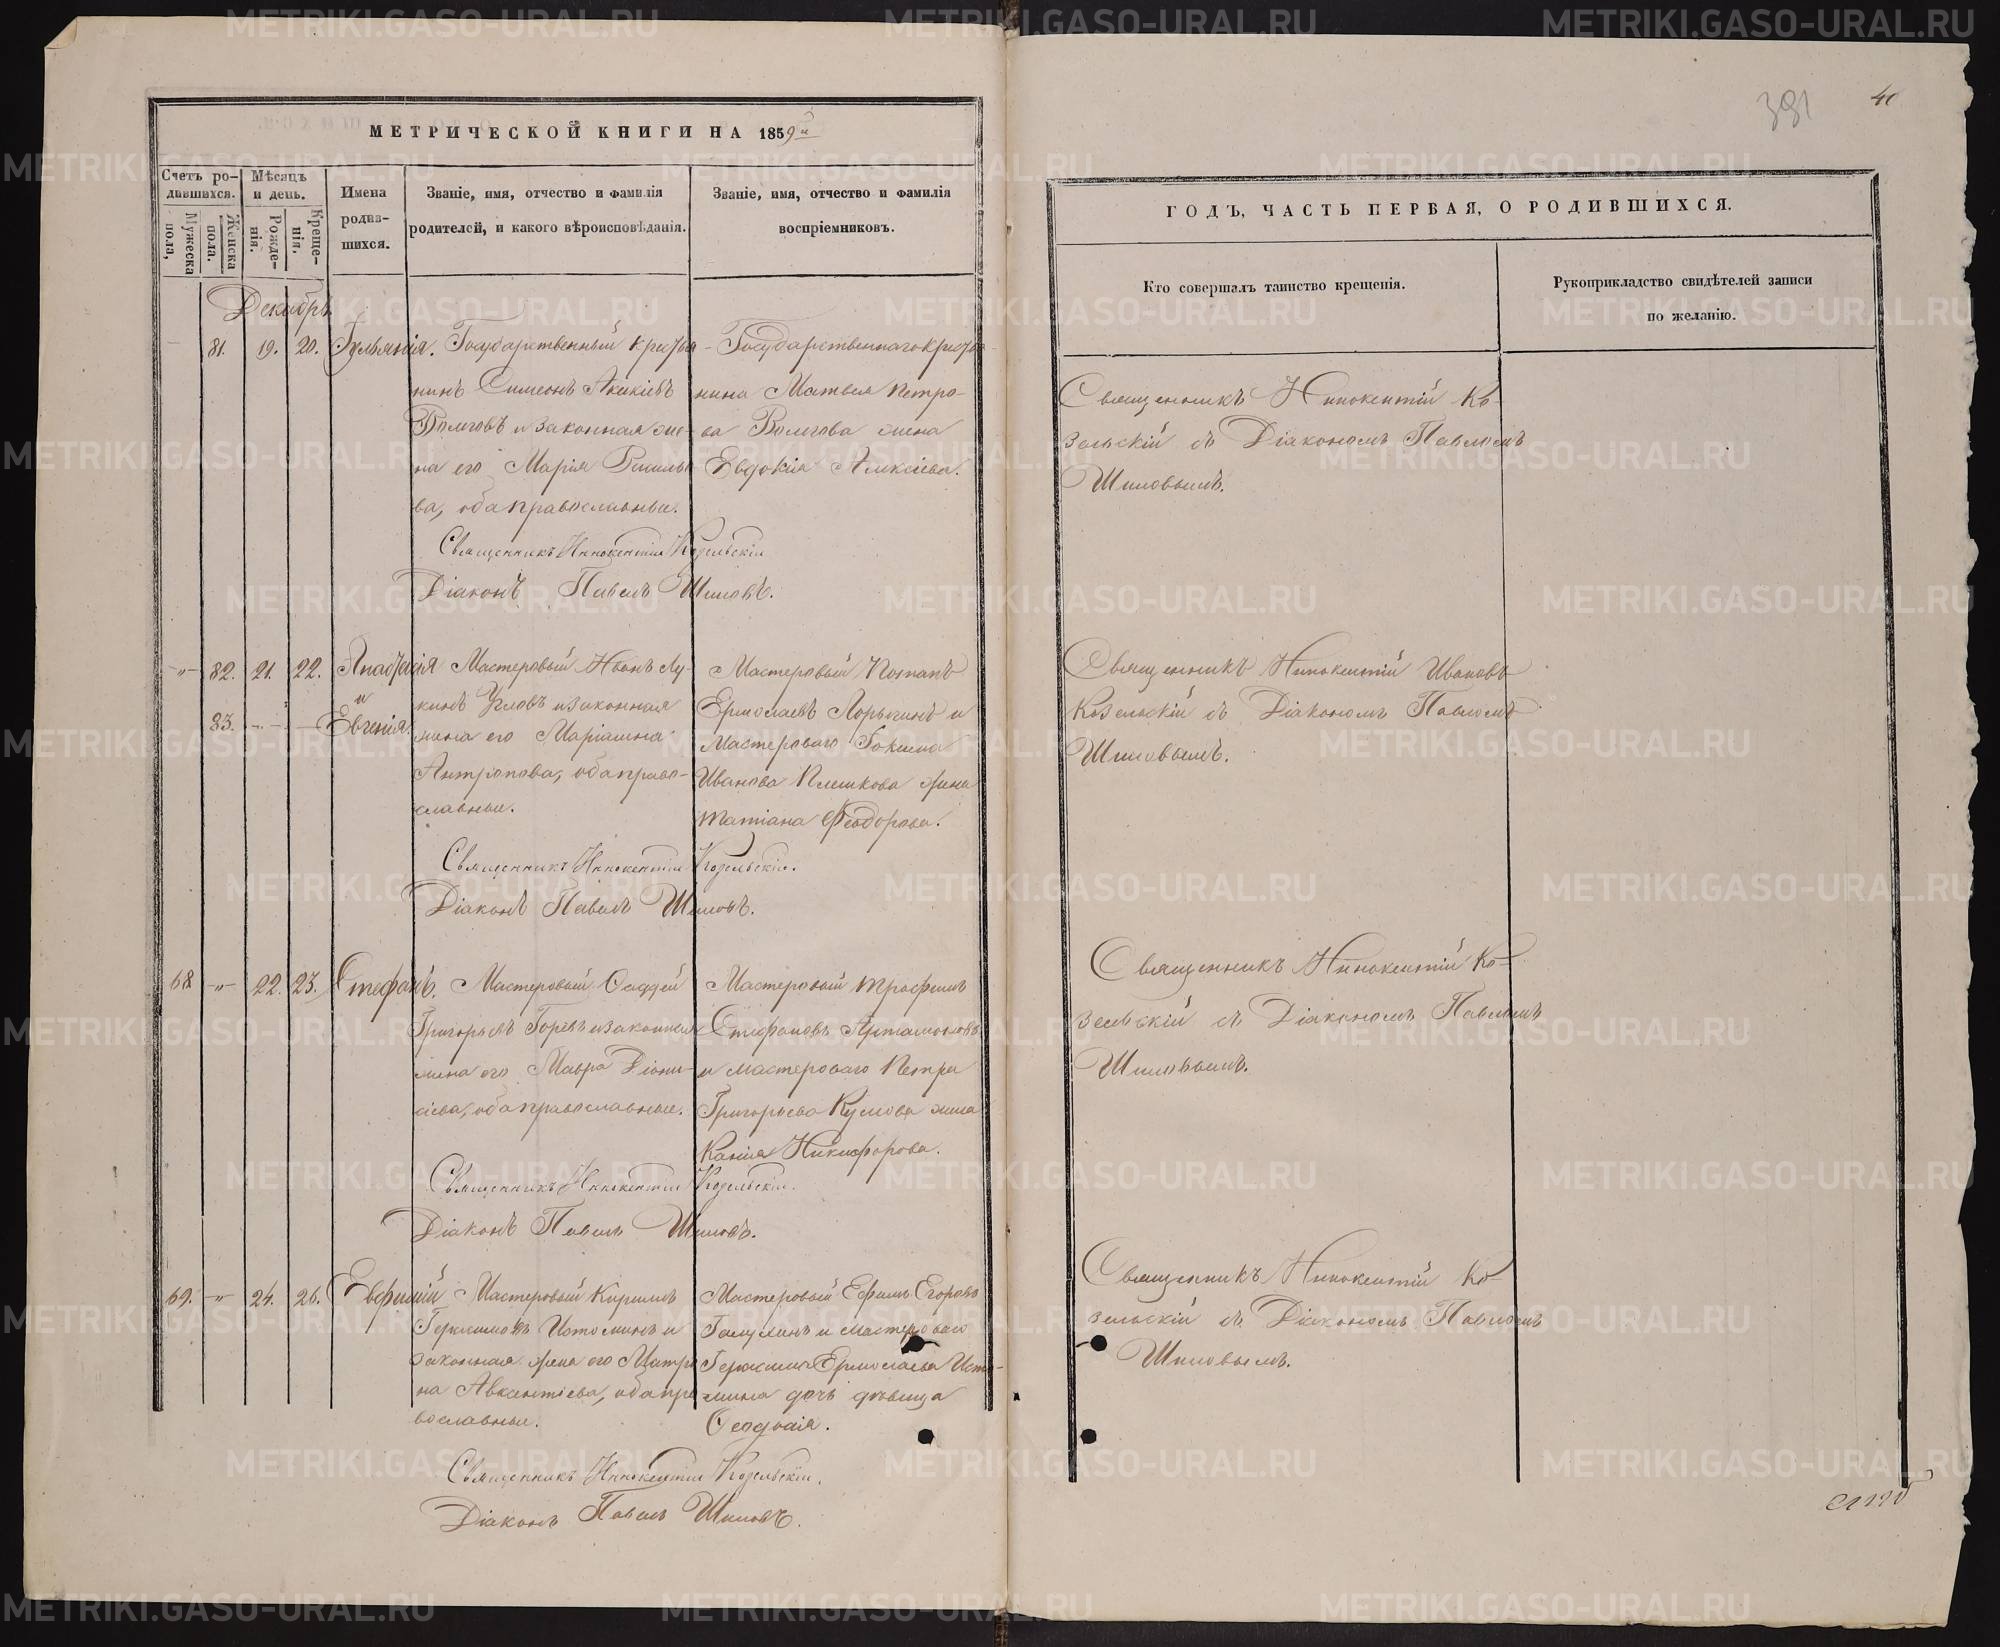 МЕТРИЧЕСКОЙ КНИГИ НА 1859й
Счетъ родившихся.
Мужеска пола,
Женска пола.
Мѣсяцъ и день.
Рожденія.
Крещенія.
Имена родившихся.
Званіе, имя, отчество и фамилія
родителей, и какого вѣроисповѣданія.
Званіе, имя, отчество и фамилія
воспріемниковъ.
Декабрь
81. 19. 20. Іульянія.
Государственный крестья-
нинъ Симеонъ Акакіевъ
и законная же-
на его Марія
ва, оба православные.
Государственнаго крестья-
нина Матвея Петро-
ва жена
Евдокія Алексіева.
Священникъ Иннокентій Козельскій
Діаконъ Павелъ Шиловъ.
-"- 82. 21. 22. Анастасія
и
83. Евгенія.
Мастеровый Иванъ Лу-
кинъ Угловъ и законная
жена его Маріамна
Антропова, оба право-
славные.
Мастеровый Романъ
Ермолаевъ и
Мастероваго
Иванова Плешкова жена
Татіана Феодорова.
Священникъ Иннокентій Козельскій.
Діаконъ Павелъ Шиловъ.
68 -"- 22. 23. Стефанъ.
Мастеровый Фаддей
Григорьевъ Горевъ и законная
жена его Мавра Діони-
сіева, оба православные.
Мастеровый Трофимъ
Стефановъ Артамоновъ
и мастероваго Петра
Григорьева жена
Никифорова.
Священникъ Иннокентій Козельскій.
Діаконъ Павелъ Шиловъ.
69. -"- 24. 26. Евфимій
Мастеровый Кирилъ
Герасимовъ Истоминъ и
законная жена его Матро-
на Авксентіева, оба пра-
вославные.
Мастеровый Ефимъ Егоровъ
и мастероваго
Герасима Ермолаева Исто-
мина дочь дѣвица
Феодосія.
Священникъ Иннокентій Козельскій.
Діаконъ Павелъ Шиловъ.
391
ГОДЪ, ЧАСТЬ ПЕРВАЯ, О РОДИВШИХСЯ.
Кто совершалъ таинство крещенія.
Рукоприкладство свидѣтелей записи
по желанію.
Священникъ Иннокентій Ко-
зельскій съ Діакономъ Павломъ
Шиловымъ.
Священникъ Иннокентій Ивановъ
Козельскій съ Діакономъ Павломъ
Шиловымъ.
Священникъ Иннокентій Ко-
зельскій съ Діакономъ Павломъ
Шиловымъ.
Священникъ Иннокентій Ко-
зельскій съ Діакономъ Павломъ
Шиловымъ.
METRIKI.GASO-URAL.RU